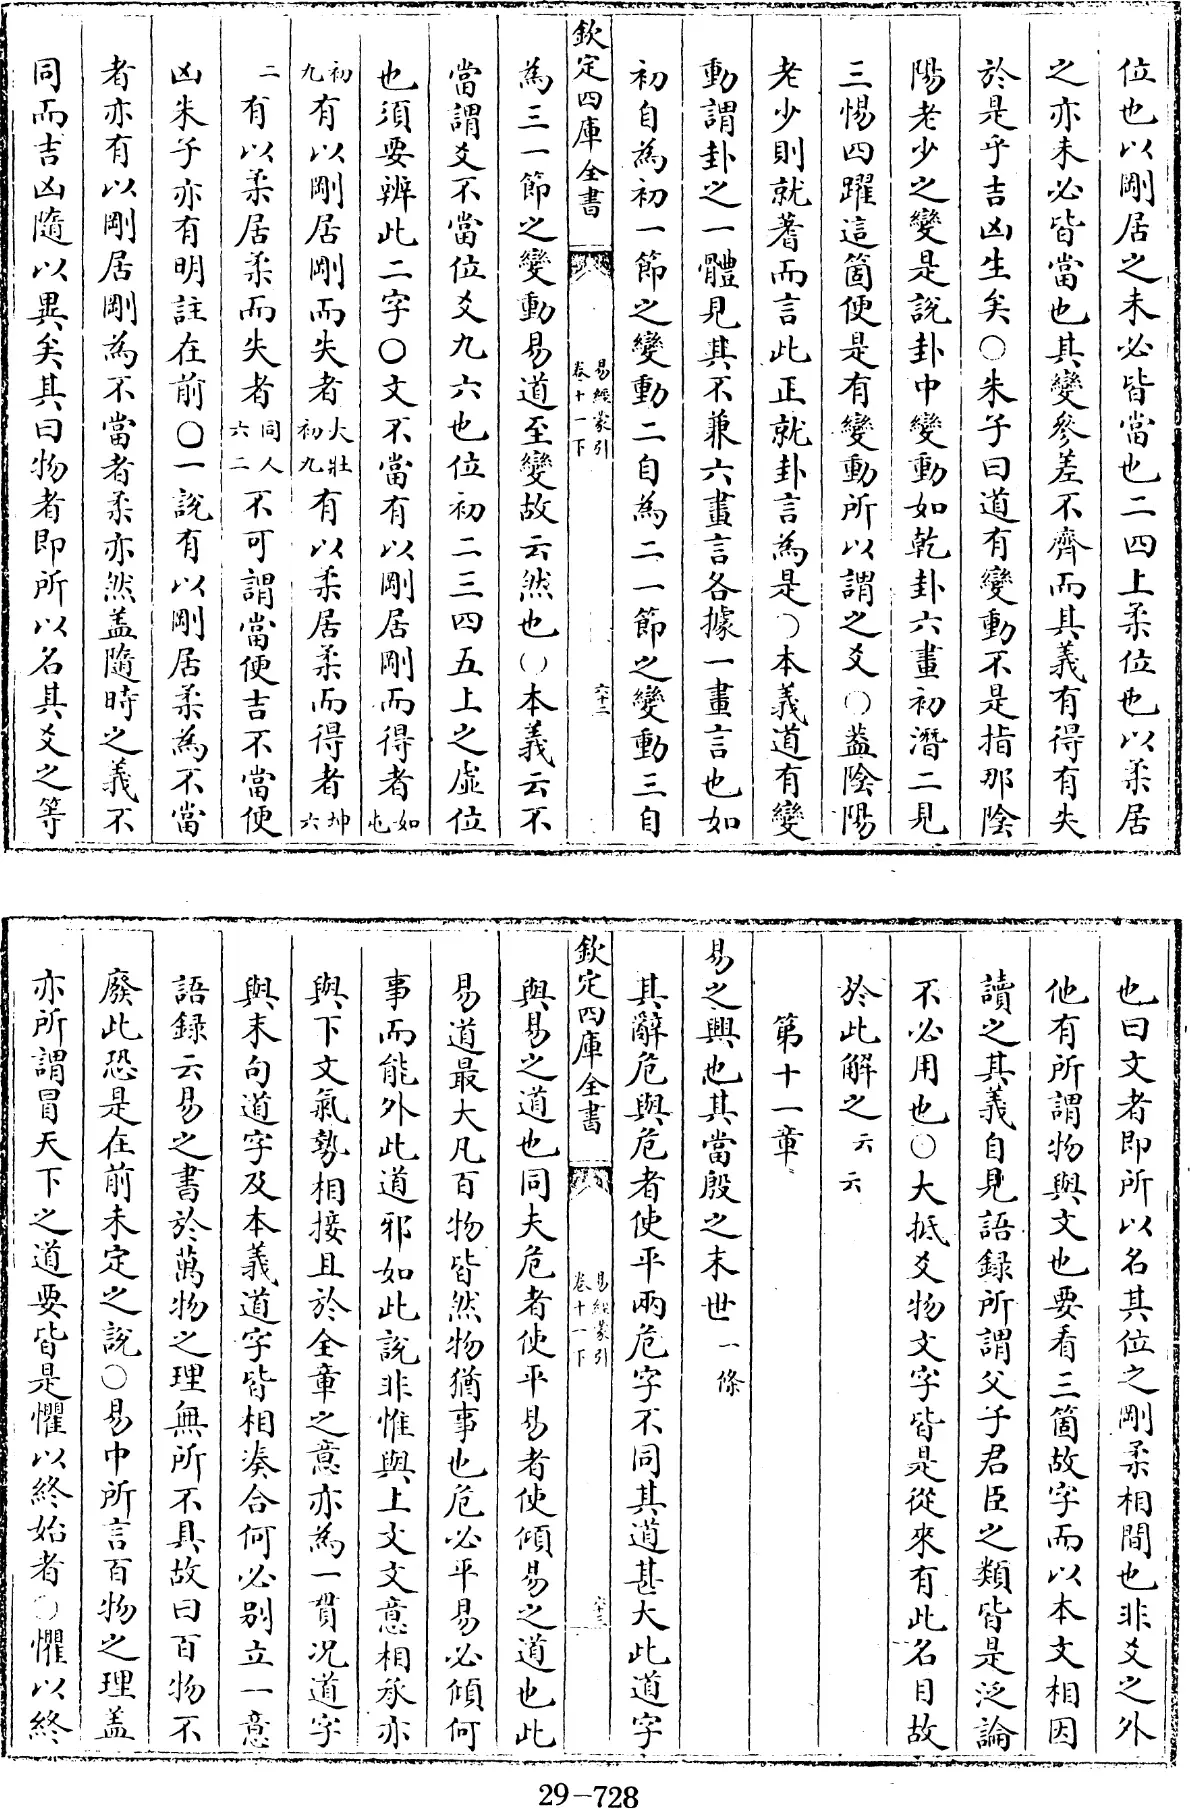 位也以剛居之未必皆當也二四上柔位也以柔居
之亦未必皆當也其變參差不齊而其義有得有失
於是乎吉凶生矣○朱子曰道有變動不是指那陰
陽老少之變是說卦中變動如乾卦六畫初潛二見
三惕四躍這箇便是有變動所以謂之爻○蓋陰陽
老少則就蓍而言此正就卦言為是○本義道有變
動謂卦之一體見其不兼六畫言各據一畫言也如
初自為初一節之變動二自為二一節之變動三自
欽定四庫全書
易經蒙引
卷十一下
六十二
為三一節之變動易道至變故云然也○本義云不
當謂爻不當位爻九六也位初二三四五上之虛位
也須要辨此二字○文不當有以剛居剛而得者如屯
初九有以剛居剛而失者大壯初九有以柔居柔而得者坤六
二有以柔居柔而失者同人六二不可謂當便吉不當便
凶朱子亦有明註在前○一說有以剛居柔為不當
者亦有以剛居剛為不當者柔亦然蓋隨時之義不
同而吉凶隨以異矣其曰物者即所以名其爻之等
也曰文者即所以名其位之剛柔相間也非爻之外
他有所謂物與文也要看三箇故字而以本文相因
讀之其義自見語錄所謂父子君臣之類皆是泛論
不必用也○大抵爻物文字皆是從來有此名目故
於此解之云云
第十一章
易之興也其當殷之末世一條
其辭危與危者使平兩危字不同其道甚大此道字
欽定四庫全書
易經蒙引
卷十一下
六十三
與易之道也同夫危者使平易者使傾易之道也此
易道最大凡百物皆然物猶事也危必平易必傾何
事而能外此道邪如此說非惟與上文文意相承亦
與下文氣勢相接且於全章之意亦為一貫況道字
與末句道字及本義道字皆相湊合何必別立一意
語録云易之書於萬物之理無所不具故曰百物不
廢此恐是在前未定之說○易中所言百物之理蓋
亦所謂冒天下之道要皆是懼以終始者○懼以終
29-728